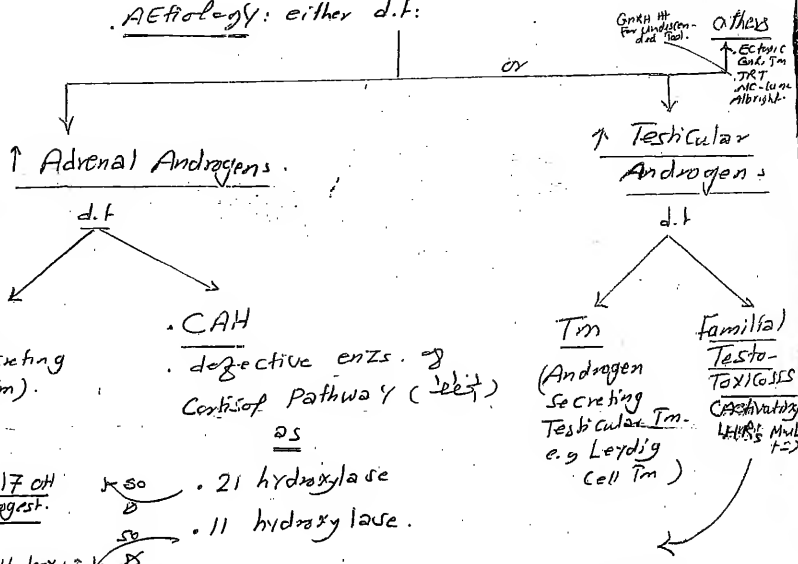 . AEtiology: either d.t:
GnRH ttt
For undescen-
ded Test.
others
. Ectopic
GnRH Tm
. TRT
. MC-Cune
Albright.
or
↑ Adrenal Androgens.
↑ Testicular
Androgens
d.t
d.t
. CAH
. defective enzs. of
Cortisol Pathway
as
. 21 hydroxylase
. 11 hydroxylase.
creting
m).
17 OH
ogest.
so
so
Tm
(Androgen
secreting
Testicular Tm.
e.g Leydig
Cell Tm)
Familial
Testo-
Toxicosis
(Activating